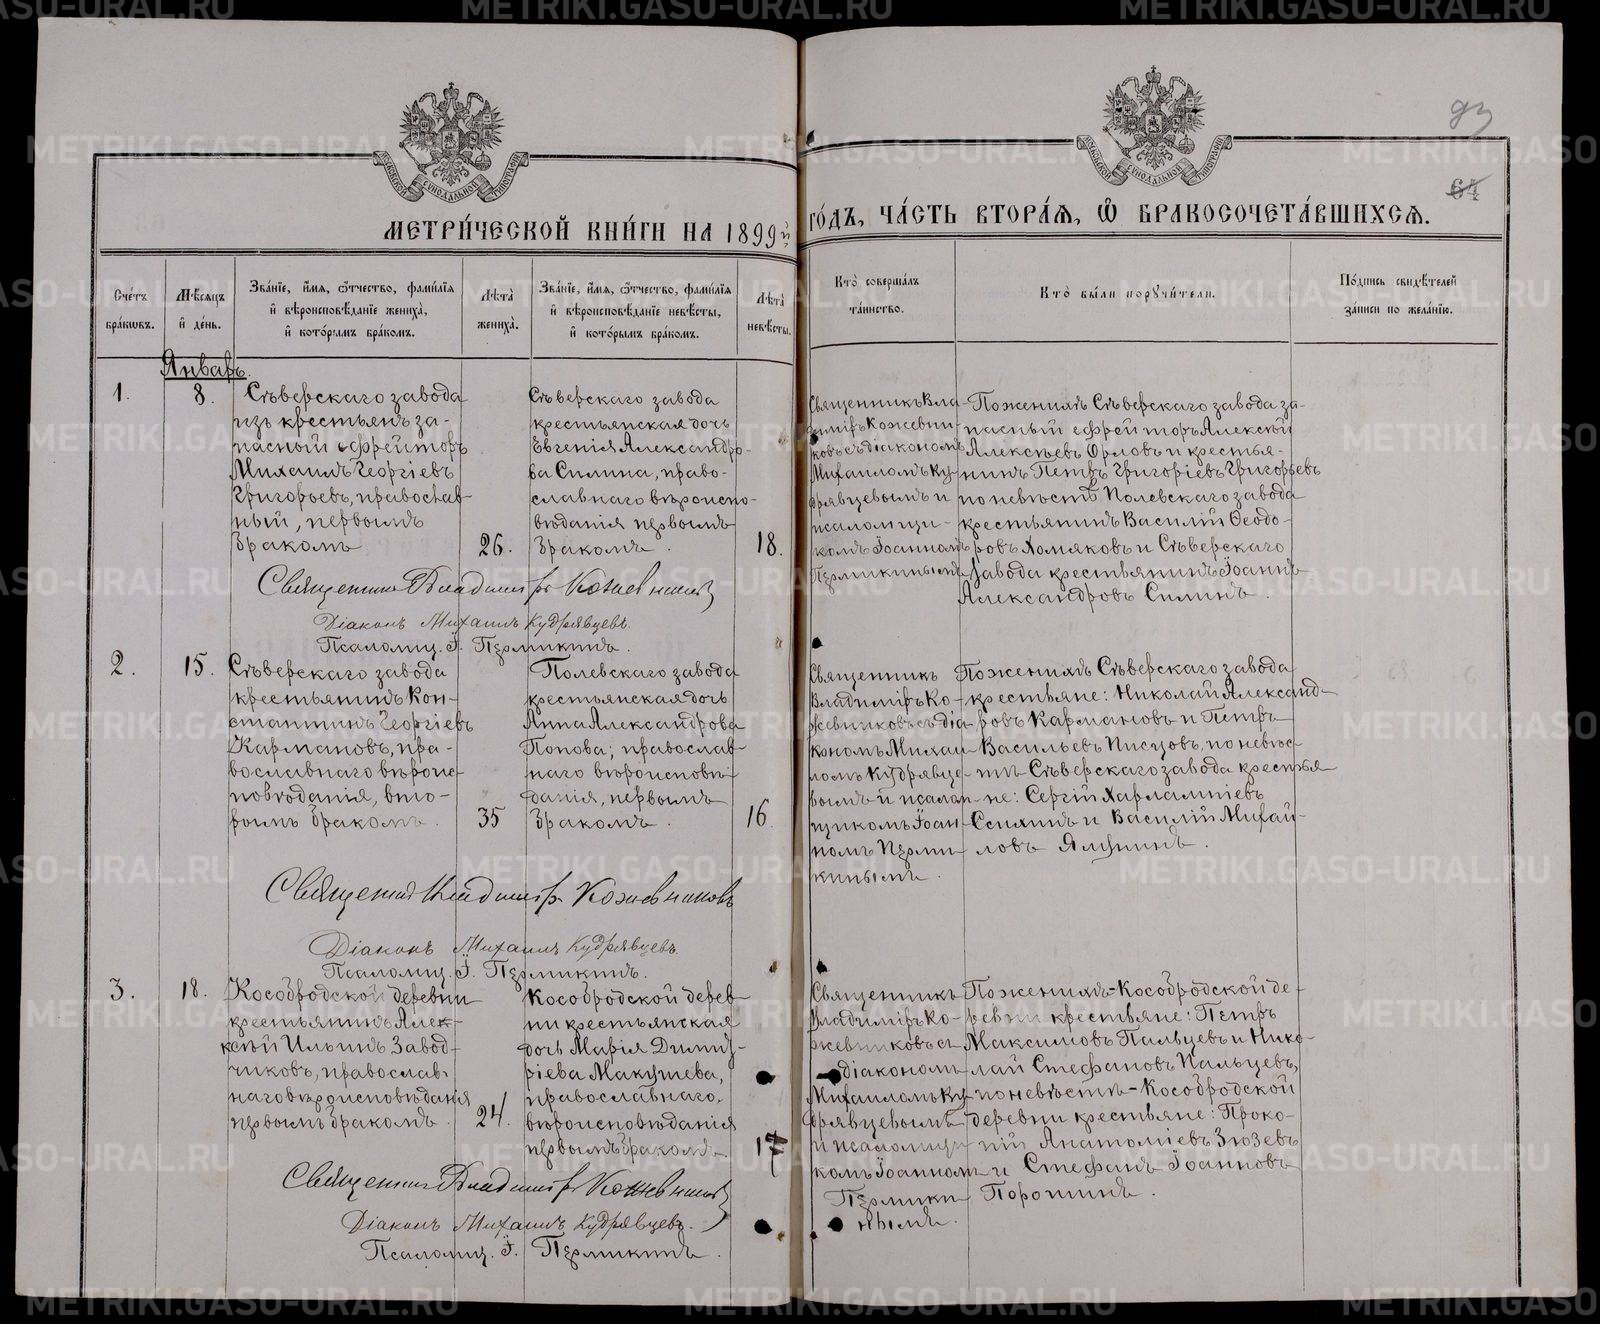 93
64
МОСКОВСКОЙ СУНОДАЛЬНОЙ ТИПОГРАФІИ
МОСКОВСКОЙ СУНОДАЛЬНОЙ ТИПОГРАФІИ
МЕТРИ́ЧЕСКОЙ КНИ́ГИ НА 1899й ГО́ДЪ, ЧА́СТЬ ВТОРА́Ѧ, Ѽ БРАКОСОЧЕТА́ВШИХСѦ.
Сче́тъ
бра́кωвъ.
Мѣ́сѧцъ
и҆ де́нь.
Зва́нїе, и҆́мѧ, ѻ҆́тчество, фами́лїѧ
и҆ вѣроисповѣ́данїе жениха̀,
и҆ кото́рымъ бра́комъ.
Лѣ́та
жениха̀.
Зва́нїе, и҆́мѧ, ѻ҆́тчество, фами́лїѧ
и҆ вѣроисповѣ́данїе невѣ́сты,
и҆ кото́рымъ бра́комъ.
Лѣ́та
невѣ́сты.
Кто̀ соверша́лъ
та́инство.
Кто̀ бы́ли порꙋчи́тели.
По́дпись свидѣ́телей
за́писи по жела́нїю.
Январь.
1.
8.
Сѣверскаго завода
изъ крестьянъ за-
пасный ефрейторъ
Михаилъ Георгіевъ
Григорьевъ, православ-
ный, первымъ
бракомъ
26.
Сѣверскаго завода
крестьянская дочь
Евгенія Александро-
ва Силина, право-
славнаго вѣроиспо-
вѣданія первымъ
бракомъ.
18.
Священникъ Вла-
диміръ Кожевни-
ковъ съ діакономъ
Михаиломъ Ку-
дрявцевымъ и
псаломщи-
комъ Іоанномъ
Пермикинымъ
По женихѣ Сѣверскаго завода за-
пасный ефрейторъ Алексѣй
Алексѣевъ Орловъ и крестья-
нинъ Петръ Григоріевъ Григорьевъ
по невѣстѣ Полевскаго завода
крестьянинъ Василій Ѳеодо-
ровъ Хомяковъ и Сѣверскаго
завода крестьянинъ Іоаннъ
Александровъ Силинъ.
Священникъ Владиміръ Кожевниковъ
Діаконъ Михаилъ Кудрявцевъ.
Псаломщ. І. Пермикинъ.
2.
15.
Сѣверскаго завода
крестьянинъ Кон-
стантинъ Георгіевъ
Кармановъ, пра-
вославнаго вѣроис-
повѣданія, вто-
рымъ бракомъ.
35
Полевскаго завода
крестьянская дочь
Анна Александрова
Попова; православ-
наго вѣроисповѣ-
данія, первымъ
бракомъ.
16.
Священникъ
Владиміръ Ко-
жевниковъ съ діа-
кономъ Михаи-
ломъ Кудрявце-
вымъ и псалом-
щикомъ Іоан-
номъ Перми-
кинымъ.
По женихѣ Сѣверскаго завода
крестьяне: Николай Александ-
ровъ Кармановъ и Петръ
Васильевъ Писцовъ, по невѣс-
тѣ Сѣверскаго завода крестья-
не: Сергій Харлампіевъ
Сенхинъ и Василій Михаи-
ловъ Ялунинъ.
Священникъ Владиміръ Кожевниковъ
Діаконъ Михаилъ Кудрявцевъ.
Псаломщ. І. Пермикинъ.
3.
18.
Кособродской деревни
крестьянинъ Алек-
сѣй Ильинъ Завод-
чиковъ, православ-
наго вѣроисповѣданія
первымъ бракомъ.
24.
Кособродской дерев-
ни крестьянская
дочь Марія Димит-
ріева Макушева,
православнаго
вѣроисповѣданія
первымъ бракомъ.
17
Священникъ
Владиміръ Ко-
жевниковъ съ
діакономъ
Михаиломъ Ку-
дрявцевымъ
и псаломщи-
комъ Іоанномъ
Пермики-
нымъ.
По женихѣ-Кособродской де-
ревни крестьяне: Петръ
Максимовъ Пальцевъ и Нико-
лай Стефановъ Пальцевъ,
по невѣстѣ-Кособродской
деревни крестьяне: Проко-
пій Анатоліевъ Зюзевъ
и Стефанъ Іоанновъ
Порошинъ.
Священникъ Владиміръ Кожевниковъ
Діаконъ Михаилъ Кудрявцевъ.
Псаломщ. І. Пермикинъ.
METRIKI.GASO-URAL.RU